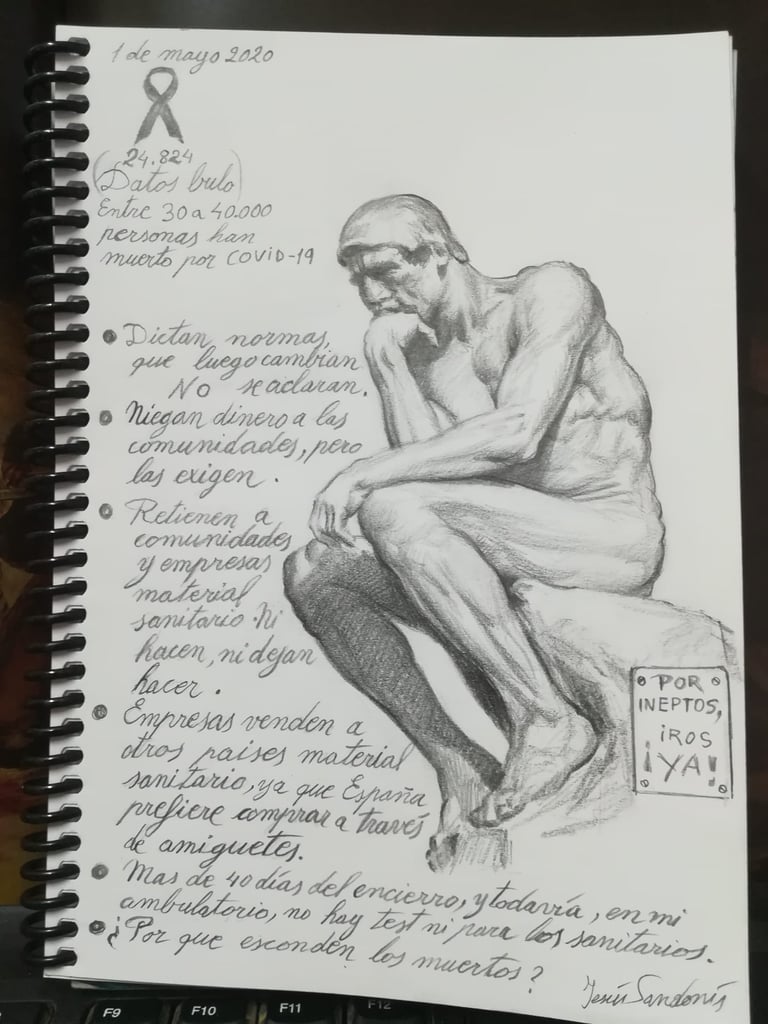 1 de mayo 2020
24.824
(Datos bulo)
Entre 30 a 40.000
personas han
muerto por COVID-19
• Dictan normas,
que luego cambian
NO se aclaran.
• Niegan dinero a las
comunidades, pero
las exigen.
• Retienen a
comunidades
y empresas
material
sanitario. Ni
hacen, ni dejan
hacer.
• Empresas venden a
otros paises material
sanitario, ya que España
prefiere comprar a través
de amiguetes.
• Mas de 40 días del encierro, y todavía, en mi
ambulatorio, no hay test ni para los sanitarios.
• ¿Por que esconden los muertos?
POR
INEPTOS,
iROS
¡YA!
Jesús Sandonís
F9
F10
F11
F12